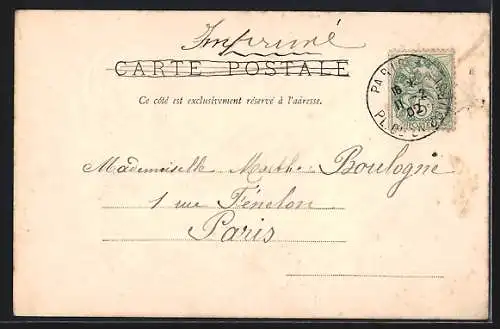 Imprimé
CARTE POSTALE
Ce côté est exclusivement réservé à l'adresse.
PARIS
11
02
PL.
Mademoiselle Marthe Boulogne
1 rue Fénelon
Paris